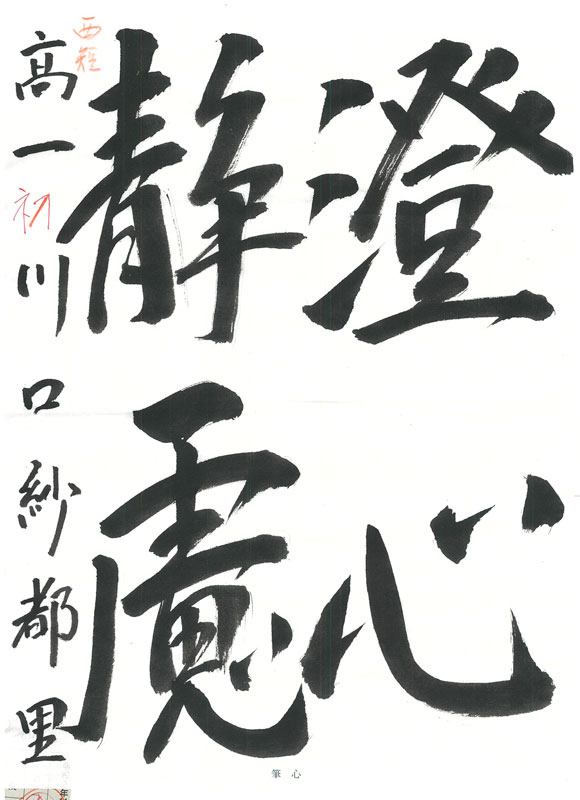 澄心
静慮
西短
高一初川口紗都里
筆心
年